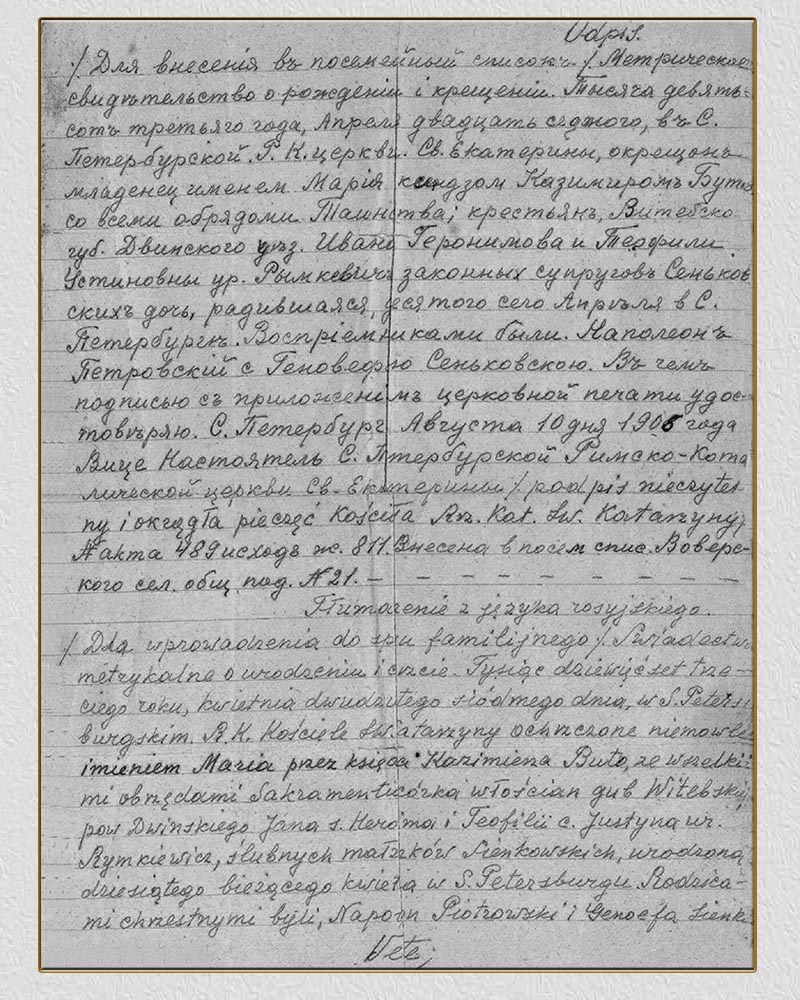 Odpis.
./ Для внесенія въ посемейный списокъ ./ Метрическое
свидѣтельство о рожденіи и крещеніи. Тысяча девять-
сотъ третьяго года, Апреля двадцать седмого, въ С.
Петербурской. Р. К. церкви. Св. Екатерины, окрещонъ
младенец именем Марія ксендзом Казимиромъ Буто,
со всеми обрядоми Таинства, крестьянъ, Витебско
губ. Двинского уѣз. Ивана Геронимова и Теофили
Устиновны ур. Рымкевичъ законных супруговъ Сеньков
скихъ дочь, радившаяся, десятого сего Апрѣля в С.
Петербургѣ. Воспріемниками были. Наполеонъ
Петровскій с Геноведою Сеньковскою. Въ чемъ
подписью съ приложенімъ церковной печати удос-
товѣряю. С. Петербург Августа 10 дня 1906 года
Вице Настоятель С. Птербурской Римско-Ката
лической церкви Св. Екатерины ./ podpis nieczytel
ny i okrągła pieczęć Kościła Rz. Kat. Św. Katarzyny/.
№ акта 489 исходъ ж. 811. Внесена в посем спис. Воверс-
кого сел. общ. под. № 21. — — — — — — — — —
Tłumaczenie z języka rosyjskiego.
./ Dla wprowadzenia do spu familijnego ./ Świadectw
metrykalne o urodzeniu i crzcie. Tysiąc dziewięćset trze-
ciego roku, kwietnia dwudzitego siódmego dnia, w S. Peters
burgskim. R. K. Kościele Św atarzyny ochrzczone niemowle
imieniem Maria przez księdza Kazimierza Buto, ze wszelki
mi obrzędami Sakramentu córka włościan gub Witebskij
pow Dwinskiego Jana s. Heroma i Teofilii c. Justyna ur.
Rymkiewicz, ślubnych małzków Sienkowskich, urodzona
dziesiątego bieżącego kwieta w S. Petersburgu. Rodzica-
mi chrzestnymi byli, Napoon Piotrowski i Genoefa Sienk